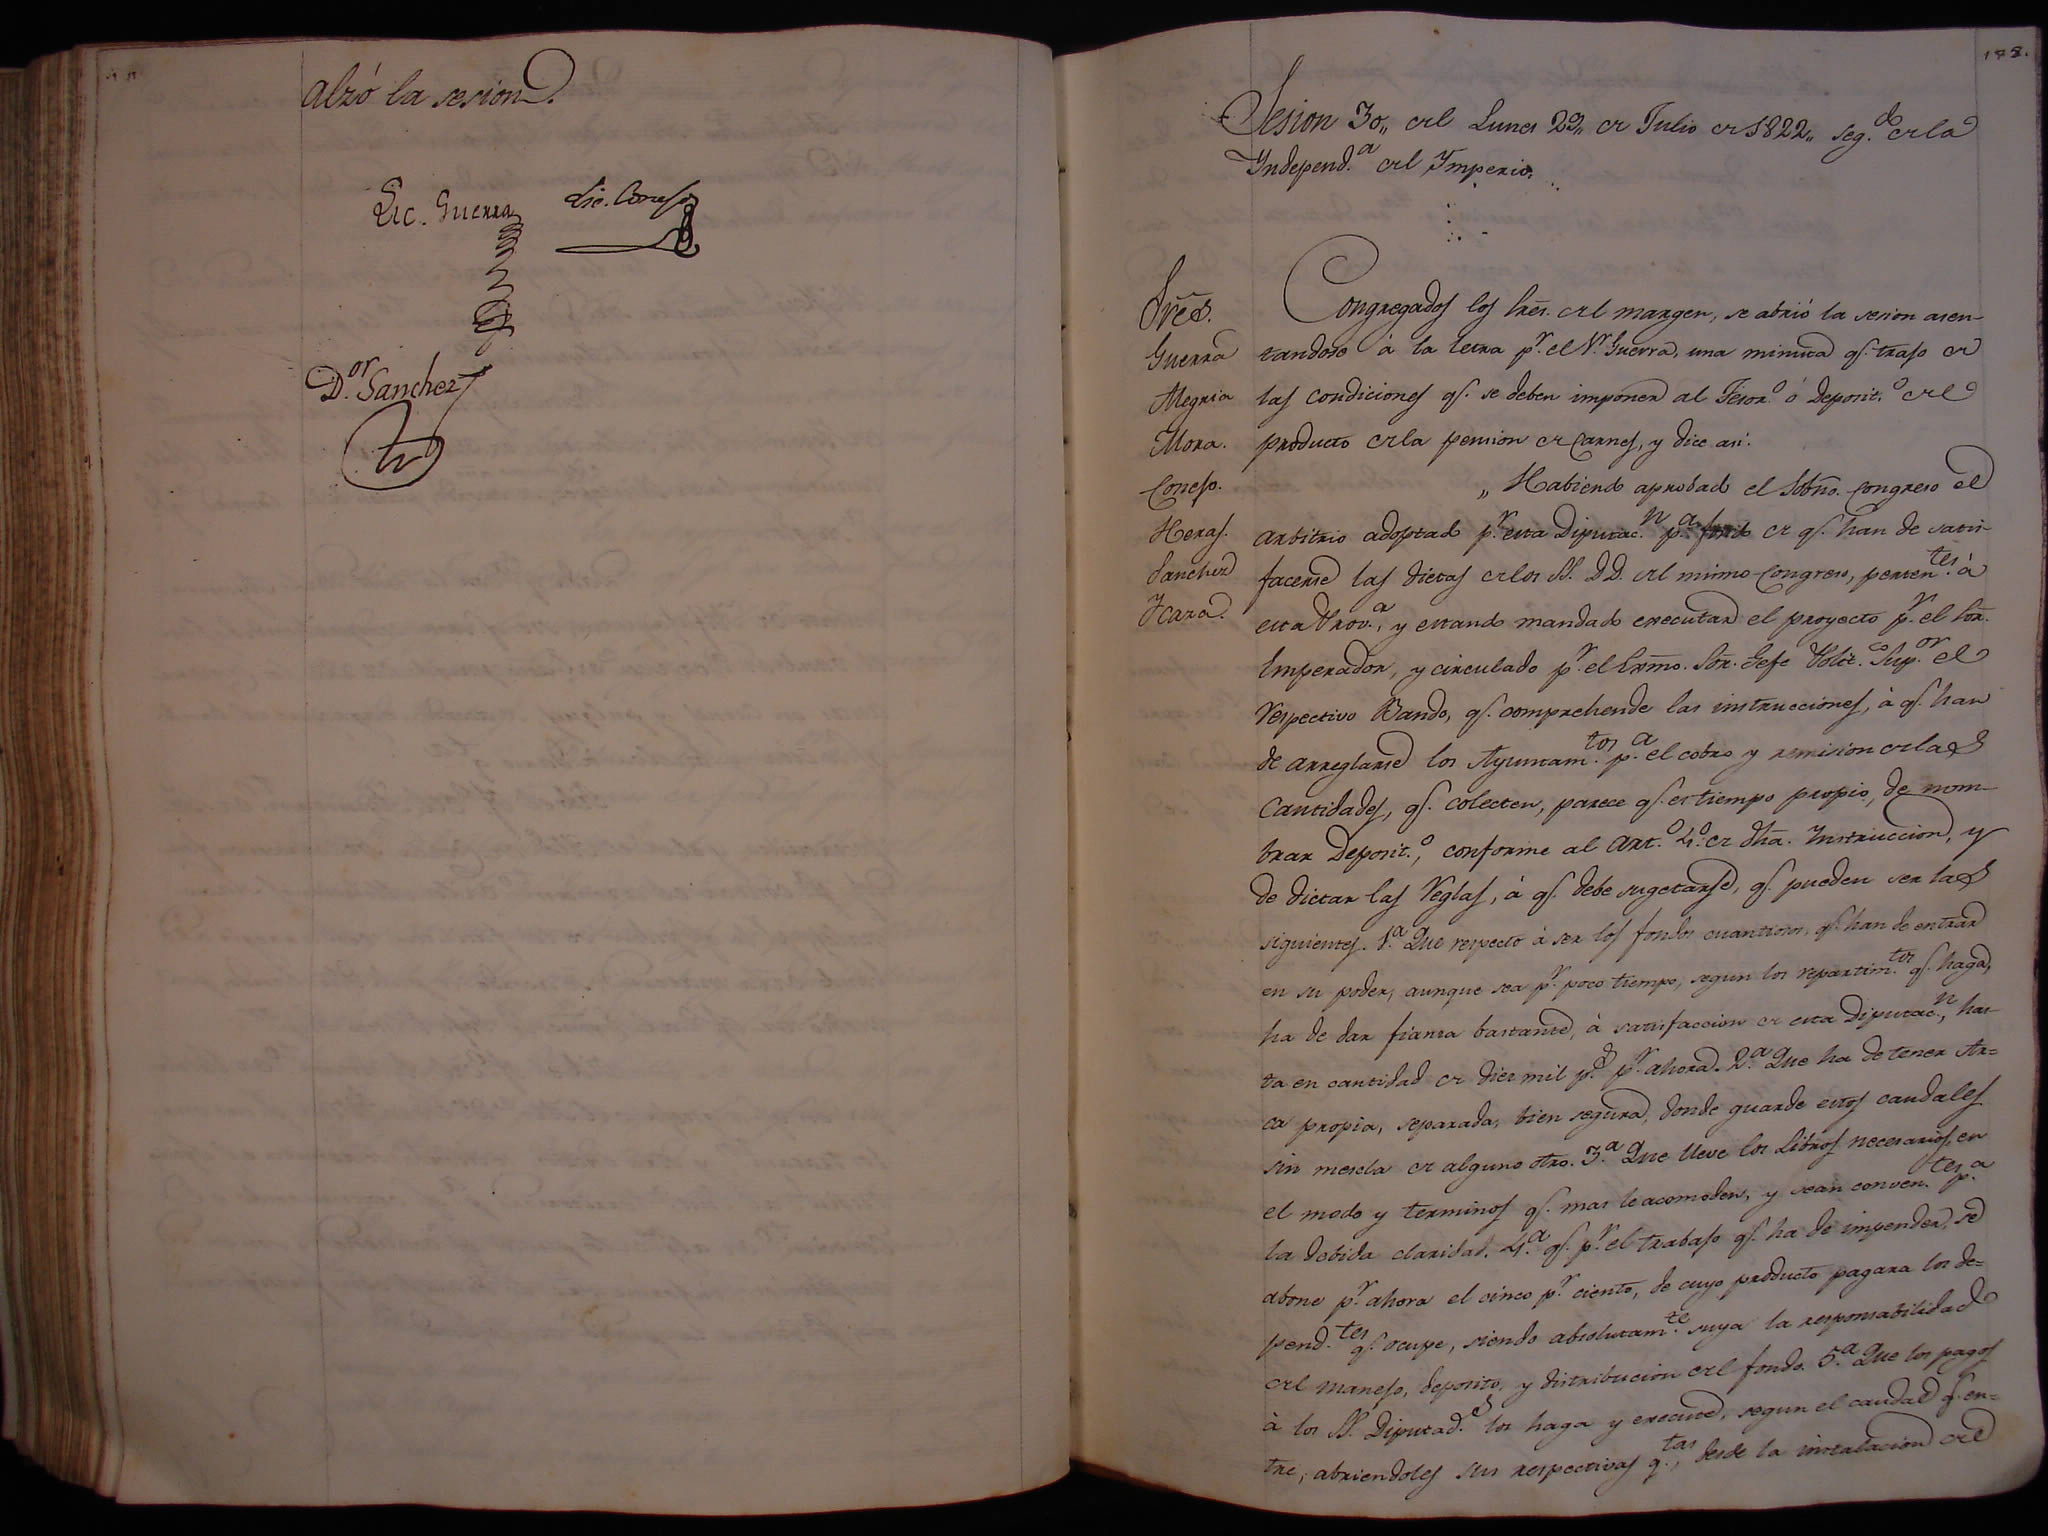 alzó la sesion.
Lic. Guerra
Lic. Conejo
D.or Sanchez
Sesion 30,, del Lunes 29,, de Julio de 1822,, seg.do de la
Yndepend.a del Ymperio.
Sres.
Guerra
Alegria
Mora.
Conejo.
Heras.
Sanchez
Ycaza.
Congregados los Sres. del margen, se abrió la sesion asen-
tandose à la letra p.r el S.r Guerra, una minuta q.e trajo de
las condiciones q.e se deben imponer al Tesor.o ó Deposit.o del
producto de la pension de Carnes, y dice asi:
,, Habiendo aprobado el Sobño. Congreso el
arbitrio adoptado p.r esta Diputac.n p.a fondo de q.e han de satis-
facerse las dietas de los SS. DD. del mismo Congreso, perten.tes à
esta Prov.a, y estando mandado executar el proyecto p.r el Sor.
Emperador, y circulado p.r el Exmo. Sor. Gefe Polit.co Sup.or el
respectivo Bando, q.e comprehende las instrucciones, à q.e han
de arreglarse los Ayuntam.tos p.a el cobro y remision de las
Cantidades, q.e colecten, parece q.e es tiempo propio, de nom-
brar Deposit.o, conforme al Art.o 4.o de dha. Ynstruccion, y
de dictar las reglas, à q.e debe sugetarse, q.e pueden ser las
siguientes. 1.a Que respecto à ser los fondos cuantiosos, q.e han de entrar
en su poder, aunque sea p.r poco tiempo, segun los repartim.tos q.e haga,
ha de dar fianza bastante, à satisfaccion de esta Diputac.n, has-
ta en cantidad de diez mil p.s p.r ahora. 2.a Que ha de tener Ar=
ca propia, separada, bien segura, donde guarde estos caudales
sin mescla de alguno otro. 3.a Que lleve los Libros necesarios, en
el modo y terminos q.e mas le acomoden, y sean conven.tes p.a
la debida claridad. 4.a q.e p.r el trabajo q.e ha de impender, se
abone p.r ahora el cinco p.r ciento, de cuyo producto pagara los de=
pend.tes q.e ocupe, siendo absolutam.te suya la responsabilidad
del manejo, deposito, y distribucion del fondo. 5.a Que los pagos
à los SS. Diputad.s los haga y execute, segun el caudal q.e en=
tre, abriendoles sus respectivas q.tas, desde la instalacion del